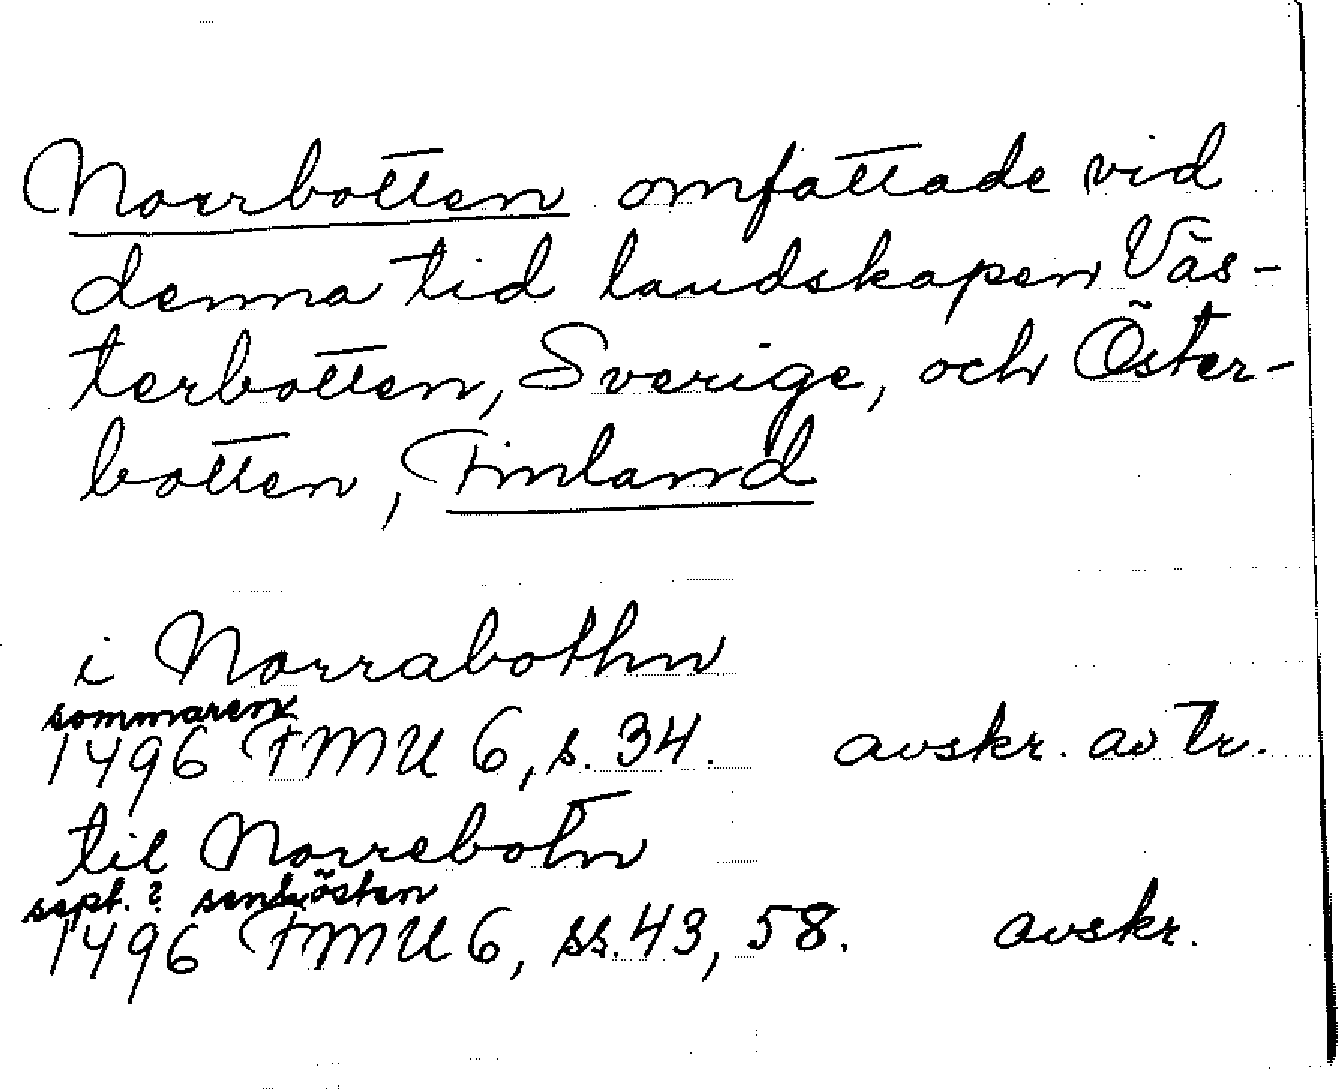 Norrbotten omfattade vid
denna tid landskapen Väs-
terbotten, Sverige, och Öster-
botten, Finland
i Norrabothn
sommaren
1496 FMU 6, s. 34. avskr. av tr.
til Norrebotn
sept.? senhösten
1496 FMU 6, ss. 43, 58. avskr.